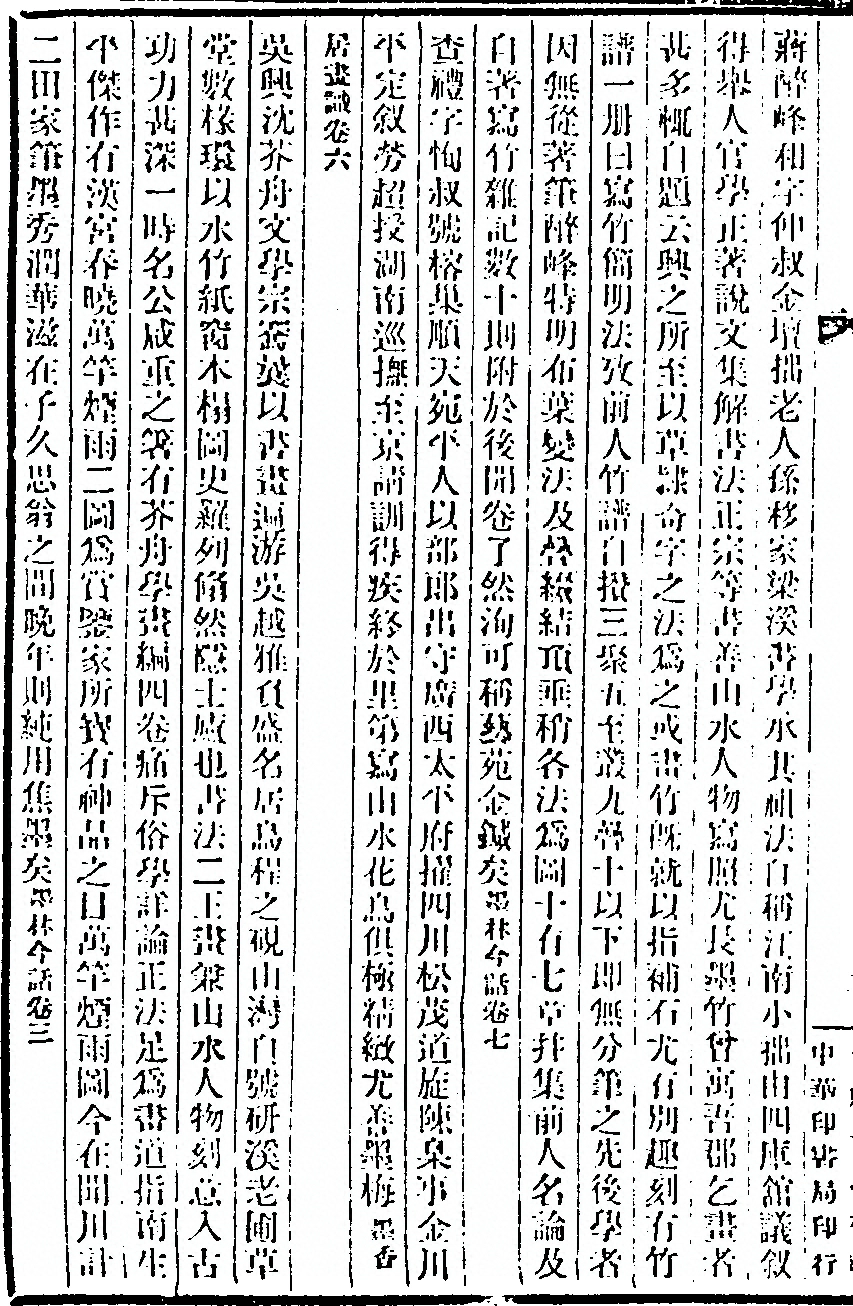 蔣醉峰和字仲叔金壇拙老人孫移家梁溪書學水其祖法自稱江南小拙由四庫館議敘
得舉人官學正著說文集解書法正宗等書善山水人物寫照尤長墨竹曾寓吾郡乞畫者
甚多輒自題云興之所至以草隸奇字之法爲之或畫竹旣就以指補石尤有別趣刻有竹
譜一册曰寫竹簡明法攷前人竹譜自撥三聚五至叢九疊十以下卽無分筆之先後學者
因無從著筆醉峰特明布葉變法及疊綴結頂垂稍各法爲圖十有七章幷集前人名論及
自著寫竹雜記數十則附於後開卷了然洵可稱藝苑金鍼矣墨林今話卷七
查禮字恂叔號榕巢順天宛平人以部郎出守廣西太平府擢四川松茂道旋陳臬事金川
平定敘勞超授湖南巡撫至京請訓得疾終於里第寫山水花鳥俱極精緻尤善墨梅墨香
居畫識卷六
吳興沈芥舟文學宗騫英以書畫遍游吳越雅負盛名居烏程之硯山灣自號硏溪老圃草
堂數椽環以水竹紙窗木榻圖史羅列翛然隱士廬也書法二王畫榘山水人物刻意入古
功力甚深一時名公咸重之著有芥舟學畫編四卷痛斥俗學詳論正法足爲畫道指南生
平傑作有漢宮春曉萬竿煙雨二圖爲賞鑒家所寶有神品之目萬竿煙雨圖今在開川計
二田家筆墨秀潤華滋在子久思翁之間晩年則純用焦墨矣墨林今話卷三
中華印書局印行